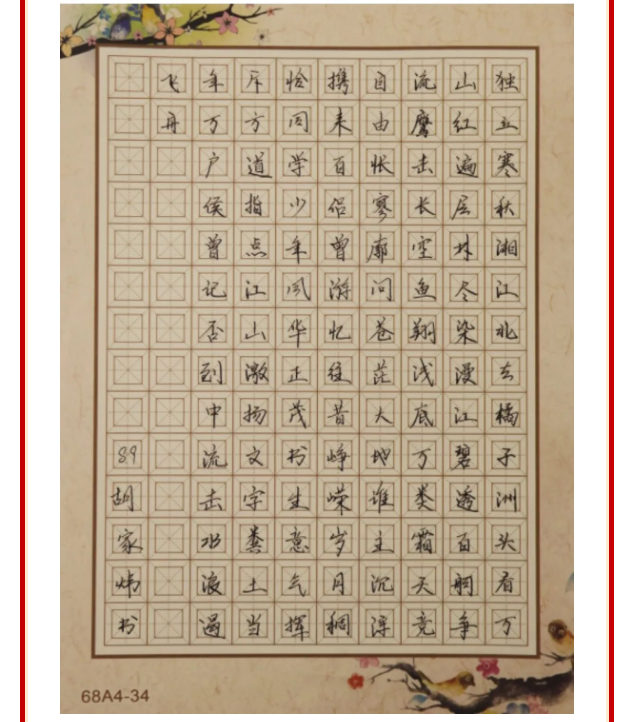 独立寒秋湘江北去橘子洲头看万
山红遍层林尽染漫江碧透百舸争
流鹰击长空鱼翔浅底万类霜天竞
自由怅寥廓问苍茫大地谁主沉浮
携来百侣曾游忆往昔峥嵘岁月稠
恰同学少年风华正茂书生意气挥
斥方道指点江山激扬文字粪土当
年万户侯曾记否到中流击水浪遏
飞舟
8.9胡家炜书
68A4-34